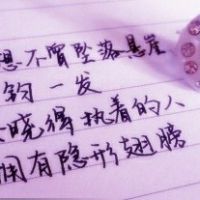 想不冒坠落悬崖
钧一发
晓得执着的人
拥有隐形翅膀